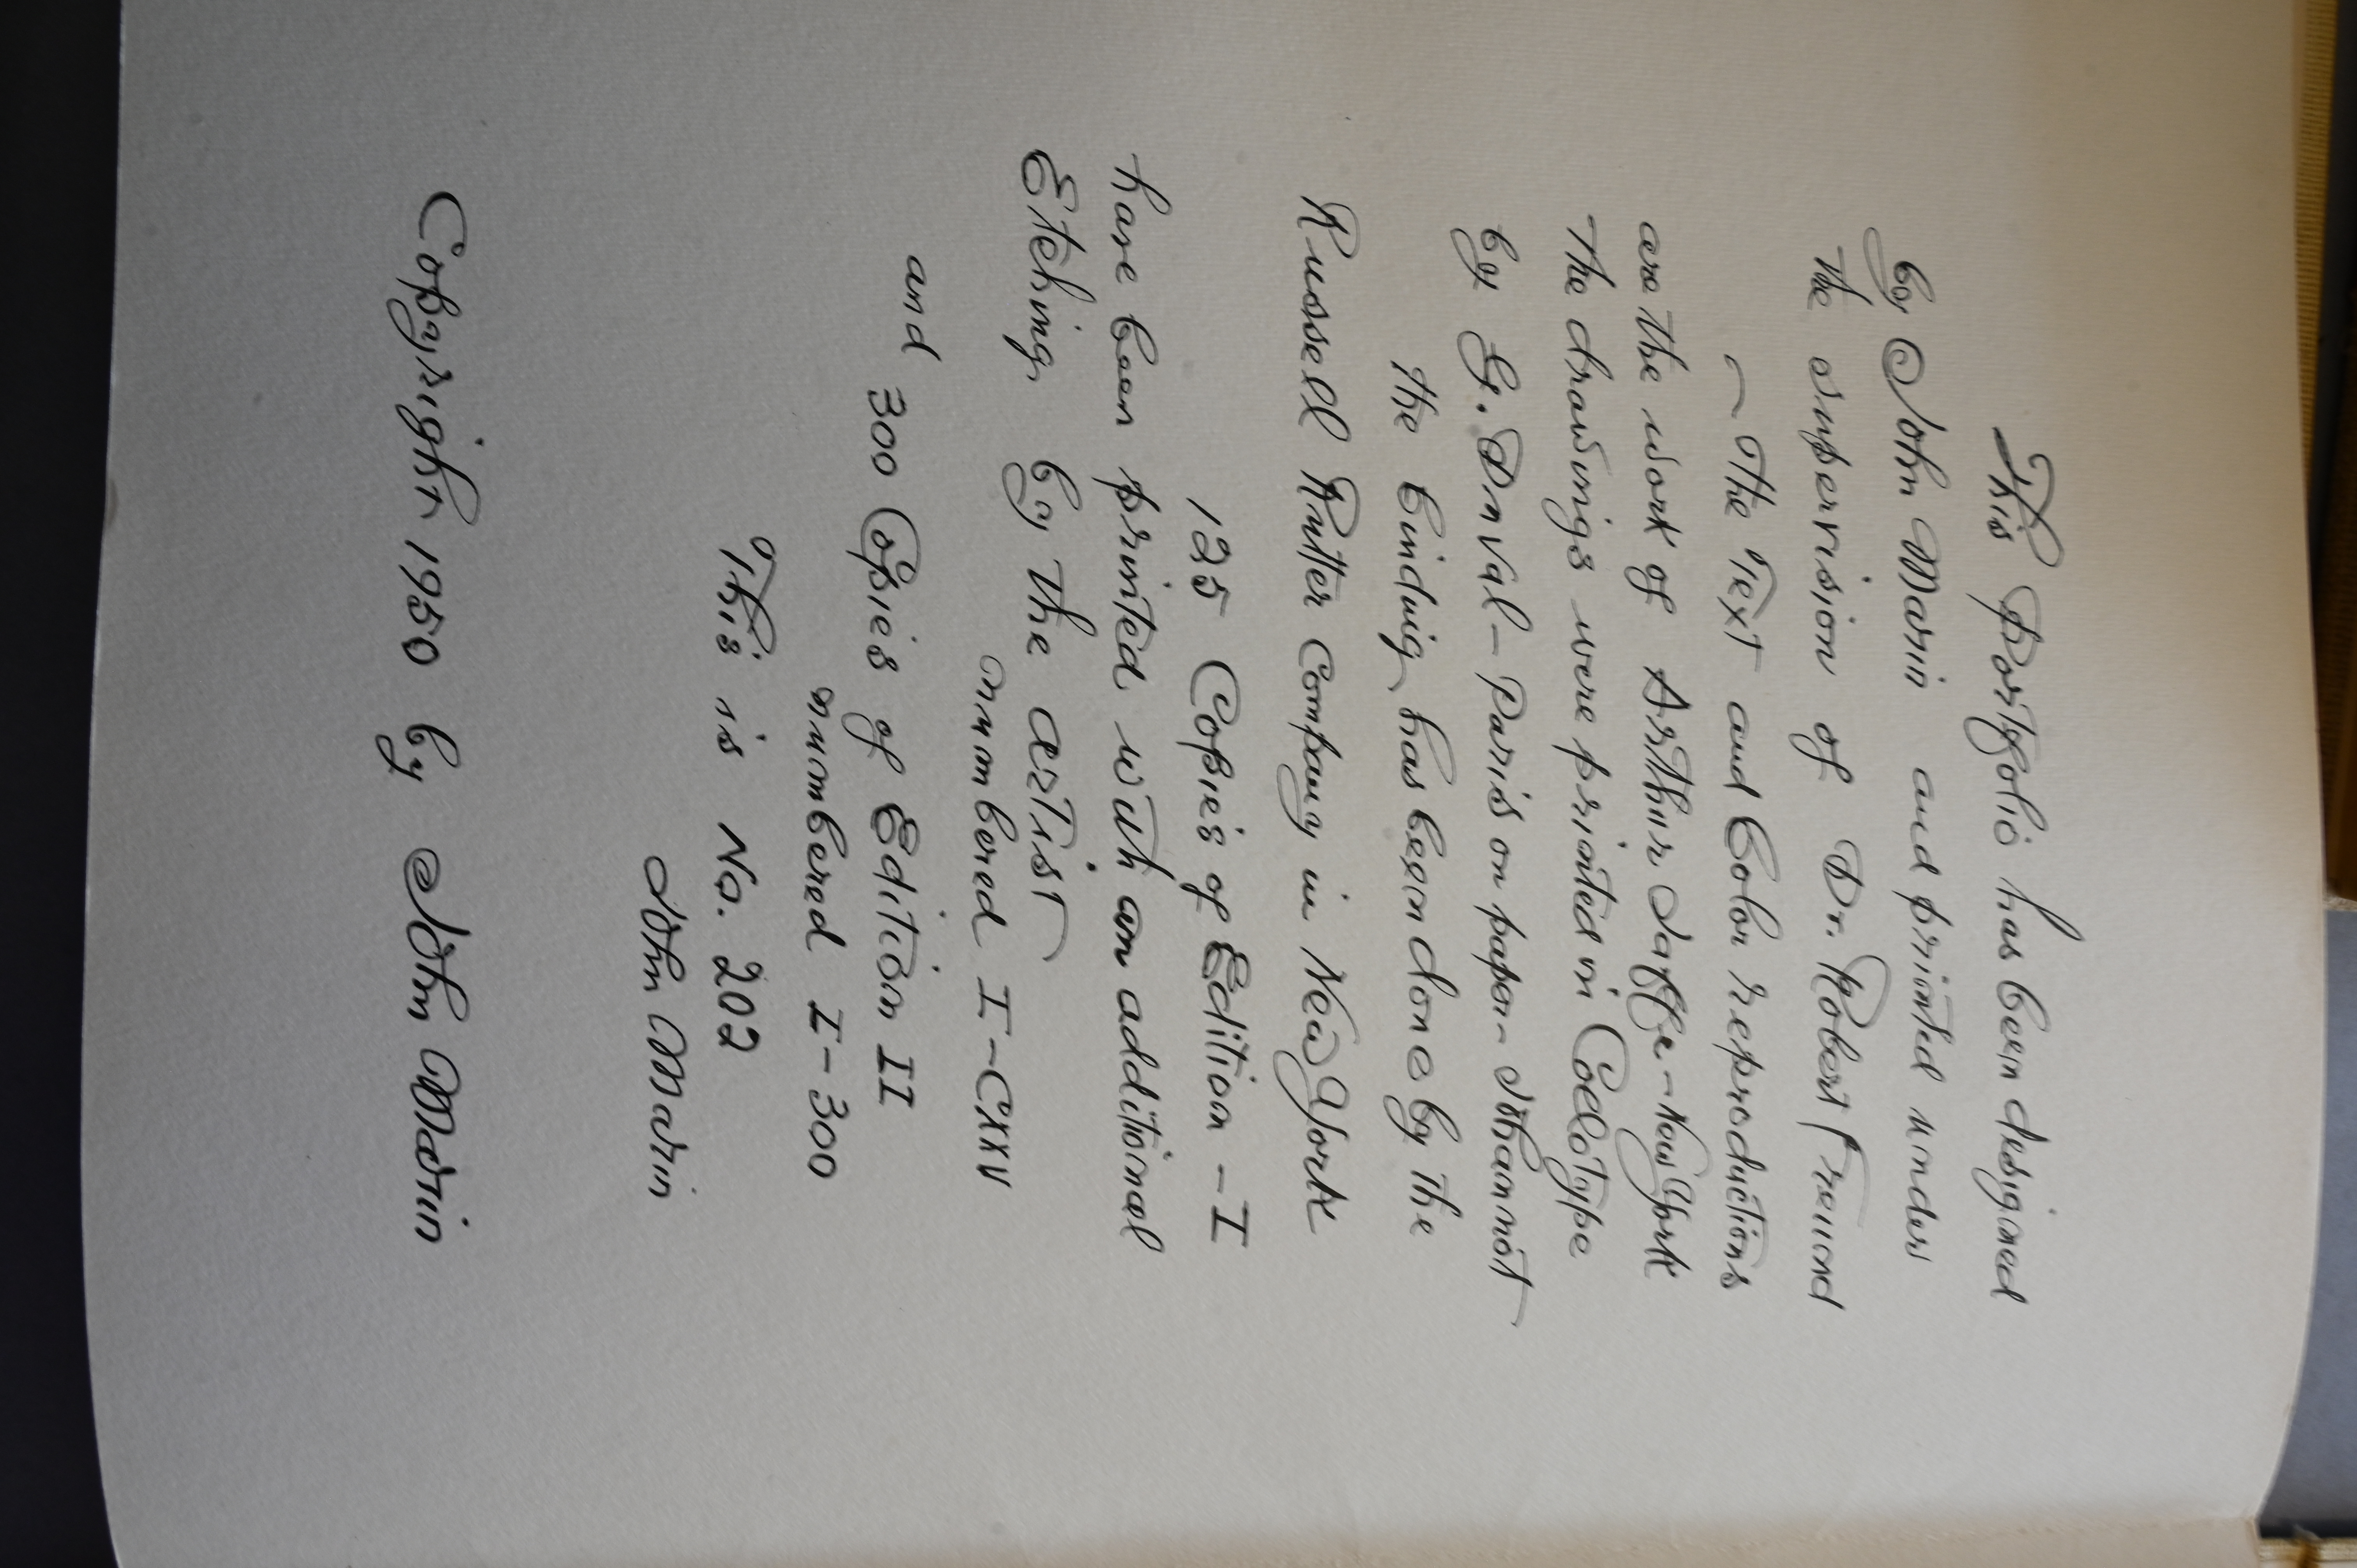 This Portfolio has been designed
by John Marin and printed under
the supervision of Dr. Robert Freund
— The Text and Color reproductions
are the work of Arthur Jaffe — New York
The drawings were printed in Collotype
by G. Duval — Paris on paper Johannot
the binding has been done by the
Russell Rutter Company in New York
125 Copies of Edition — I
have been printed with an additional
Etching by the artist
numbered I — CXXV
and
300 Copies of Edition II
numbered I — 300
This is No. 202
John Marin
Copyright 1950 by John Marin